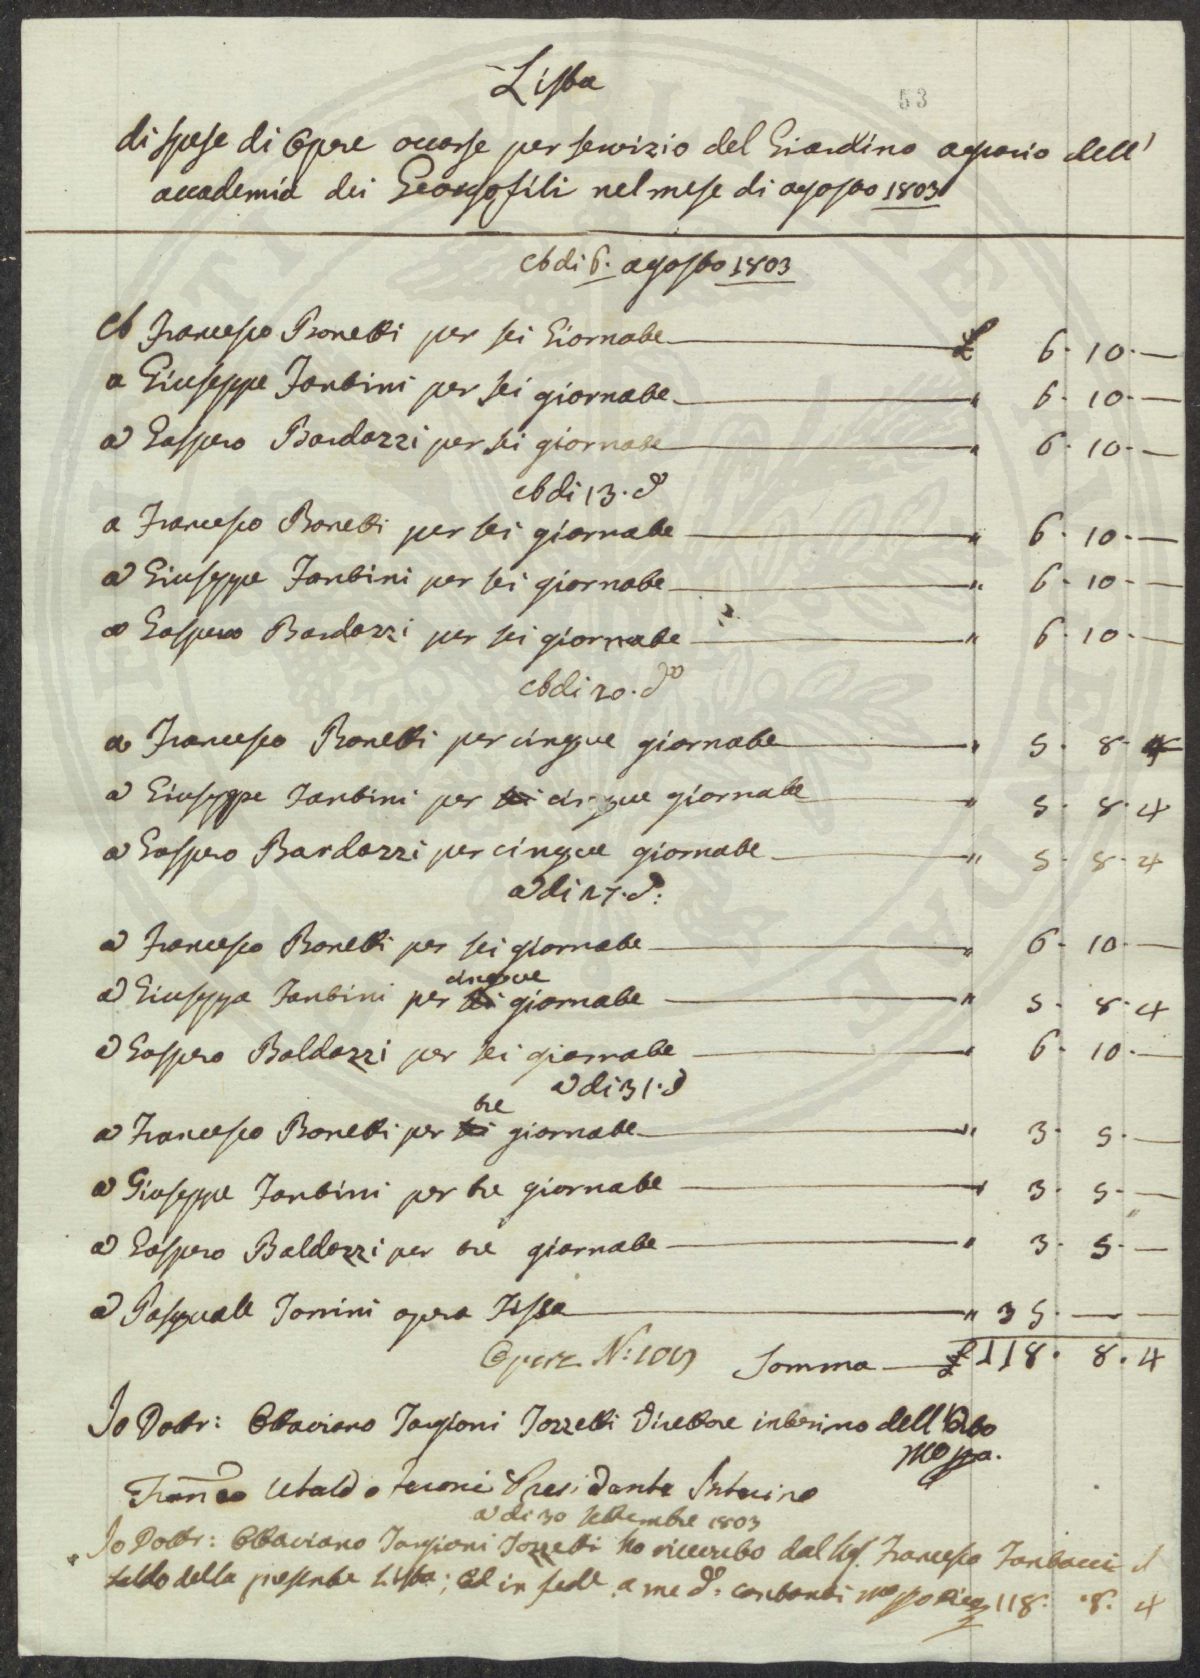 Lista
53
di spese di Opere occorse per servizio del Giardino agrario dell'
accademia dei Georgofili nel mese di agosto 1803
A di 6. agosto 1803
A Francesco Bonetti per sei Giornate £ 6. 10. —
a Giuseppe Fantini per sei giornate " 6. 10. —
a Gaspero Bardazzi per sei giornate " 6. 10. —
A di 13. do
a Francesco Bonetti per sei giornate " 6. 10. —
a Giuseppe Fantini per sei giornate " 6. 10. —
a Gaspero Bardazzi per sei giornate " 6. 10. —
A di 20. do
a Francesco Bonetti per cinque giornate " 5. 8. 4
a Giuseppe Fantini per cinque giornate " 5. 8. 4
a Gaspero Bardazzi per cinque giornate " 5. 8. 4
a di 27. d:
a Francesco Bonetti per sei giornate " 6. 10. —
a Giuseppe Fantini per cinque giornate " 5. 8. 4
a Gaspero Baldazzi per sei giornate " 6. 10. —
a di 31. d
a Francesco Bonetti per tre giornate " 3. 5. —
a Giuseppe Fantini per tre giornate " 3. 5. —
a Gaspero Baldazzi per tre giornate " 3. 5. —
a Pasquale Tonini opera Fissa " 35. — —
Opere N: Somma £ 118. 8. 4
Io Dottr: Ottaviano Targioni Tozzetti Direttore interino dell'Orto
mo ppa.
Ubaldo Feroni Presidente Interino
a di 30 settembre 1803
Io Dottr: Ottaviano Targioni Tozzetti ho ricevuto dal Sig. Francesco Fantacci il
saldo della presente Lista; ed in fede a me do: contanti mo ppo dico £ 118. 8. 4